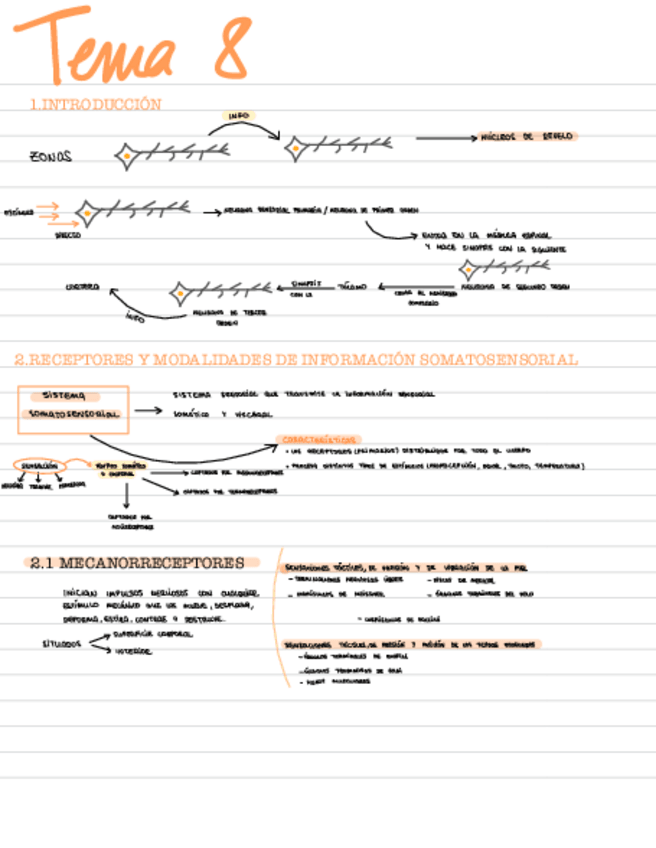 Tema 8
1.INTRODUCCIÓN
INFO
ZONAS
NÚCLEOS DE RELEVO
DIRECTO
NEURONA SENSORIAL PRIMARIA / NEURONA DE PRIMER ORDEN
ENTRA EN LA MÉDULA ESPINAL
Y HACE SINAPSIS CON LA SIGUIENTE
CORTEZA
SINAPSIS
CON LA
TÁLAMO
NEURONA DE SEGUNDO ORDEN
INFO
NEURONA DE TERCER
ORDEN
2.RECEPTORES Y MODALIDADES DE INFORMACIÓN SOMATOSENSORIAL
SISTEMA
SOMATOSENSORIAL
SISTEMA SENSORIAL QUE TRANSMITE LA INFORMACIÓN SENSORIAL
SOMÁTICO Y VISCERAL
CARACTERÍSTICAS
• LOS RECEPTORES (PRIMARIOS) DISTRIBUIDOS POR TODO EL CUERPO
• PROCESA DISTINTOS TIPOS DE ESTÍMULOS (PROPIOCEPCIÓN, DOLOR, TACTO, TEMPERATURA)
SENSACIÓN
CAPTADOS POR MECANORRECEPTORES
CAPTADOS POR TERMORRECEPTORES
CAPTADOS POR
NOCICEPTORES
2.1 MECANORRECEPTORES
INICIAN IMPULSOS NERVIOSOS CON CUALQUIER
ESTÍMULO MECÁNICO QUE LOS MUEVE, DESPLAZA,
DEFORMA, ESTIRA, CONTRAE O DESTRUYE.
SITUADOS
SUPERFICIE CORPORAL
INTERIOR
SENSACIONES TÁCTILES, DE PRESIÓN Y DE VIBRACIÓN DE LA PIEL
- TERMINACIONES NERVIOSAS LIBRES
- DISCO DE MERKEL
- CORPÚSCULOS DE MEISSNER
- CORPÚSCULOS DE PACINI
SENSACIONES TÁCTILES, DE PRESIÓN Y POSICIÓN DE LOS TEJIDOS PROFUNDOS